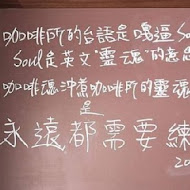 咖啡所的台語是嘎逼 So
Soul是英文"靈魂"的意思
咖啡魂沖煮咖啡所的靈魂
是
永遠都需要練
20